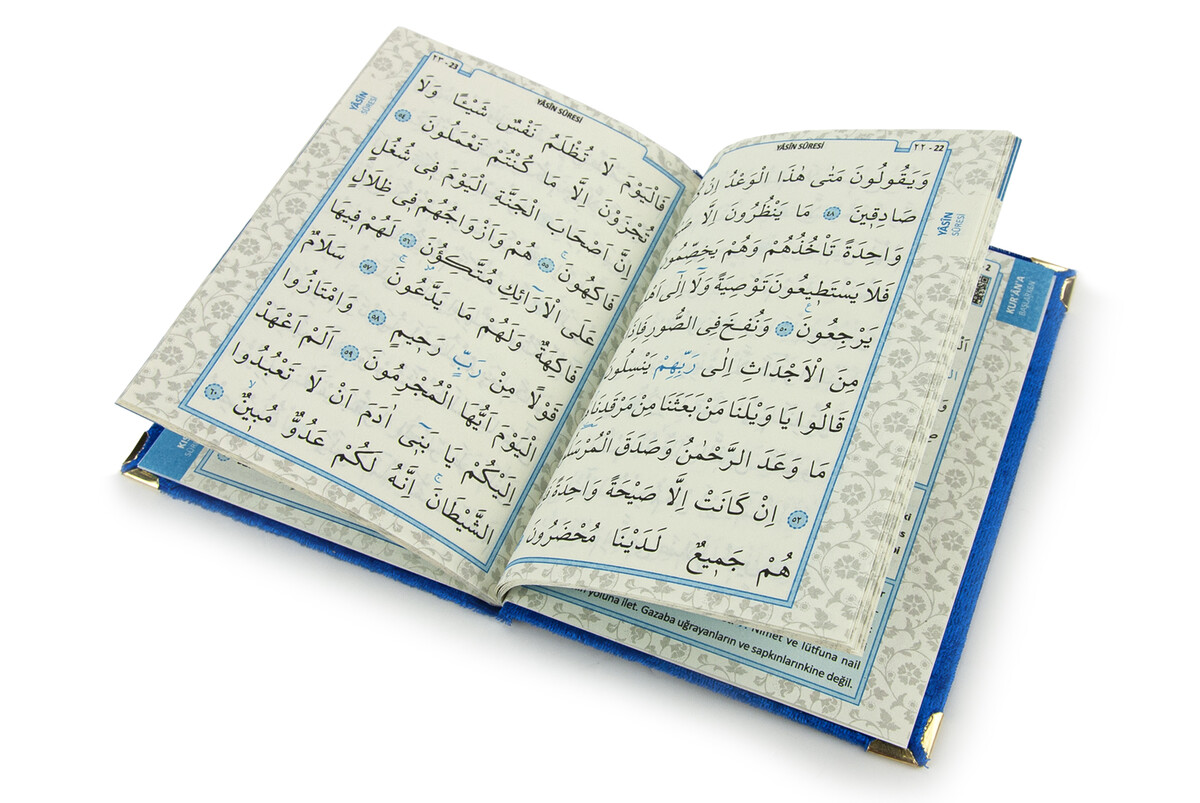 ٢٢ - 22
YÂSÎN SÛRESİ
YÂSÎN
SÛRESİ
وَيَقُولُونَ مَتٰى هٰذَا الْوَعْدُ اِنْ
صَادِقٖينَ ٤٨ مَا يَنْظُرُونَ اِلَّا
وَاحِدَةً تَاْخُذُهُمْ وَهُمْ يَخِصِّمُونَ
فَلَا يَسْتَطٖيعُونَ تَوْصِيَةً وَلَٓا اِلٰٓى
يَرْجِعُونَ ٥٠ وَنُفِخَ فِى الصُّورِ فَاِذَا
مِنَ الْاَجْدَاثِ اِلٰى رَبِّهِمْ يَنْسِلُونَ
قَالُوا يَا وَيْلَنَا مَنْ بَعَثَنَا مِنْ مَرْقَدِنَا
مَا وَعَدَ الرَّحْمٰنُ وَصَدَقَ الْمُرْسَلُونَ
٥٢ اِنْ كَانَتْ اِلَّا صَيْحَةً وَاحِدَةً
هُمْ جَمٖيعٌ لَدَيْنَا مُحْضَرُونَ
٢٣ - 23
YÂSÎN SÛRESİ
YÂSÎN
SÛRESİ
فَالْيَوْمَ لَا تُظْلَمُ نَفْسٌ شَيْـًٔا وَلَا
تُجْزَوْنَ اِلَّا مَا كُنْتُمْ تَعْمَلُونَ ٥٤
اِنَّ اَصْحَابَ الْجَنَّةِ الْيَوْمَ فٖى شُغُلٍ
فَاكِهُونَ ٥٥ هُمْ وَاَزْوَاجُهُمْ فٖى ظِلَالٍ
عَلَى الْاَرَٓائِكِ مُتَّكِؤُنَ ٥٦ لَهُمْ فٖيهَا
فَاكِهَةٌ وَلَهُمْ مَا يَدَّعُونَ ٥٧ سَلَامٌ
قَوْلًا مِنْ رَبٍّ رَحٖيمٍ ٥٨ وَامْتَازُوا
الْيَوْمَ اَيُّهَا الْمُجْرِمُونَ ٥٩ اَلَمْ اَعْهَدْ
اِلَيْكُمْ يَا بَنٖٓى اٰدَمَ اَنْ لَا تَعْبُدُوا
الشَّيْطَانَ اِنَّهُ لَكُمْ عَدُوٌّ مُبٖينٌ ٦٠
2
KUR'ÂN'A
BAŞLARKEN
yoluna ilet. Gazaba uğrayanların ve sapkınlarınkine değil.
Nimet ve lütfuna nail